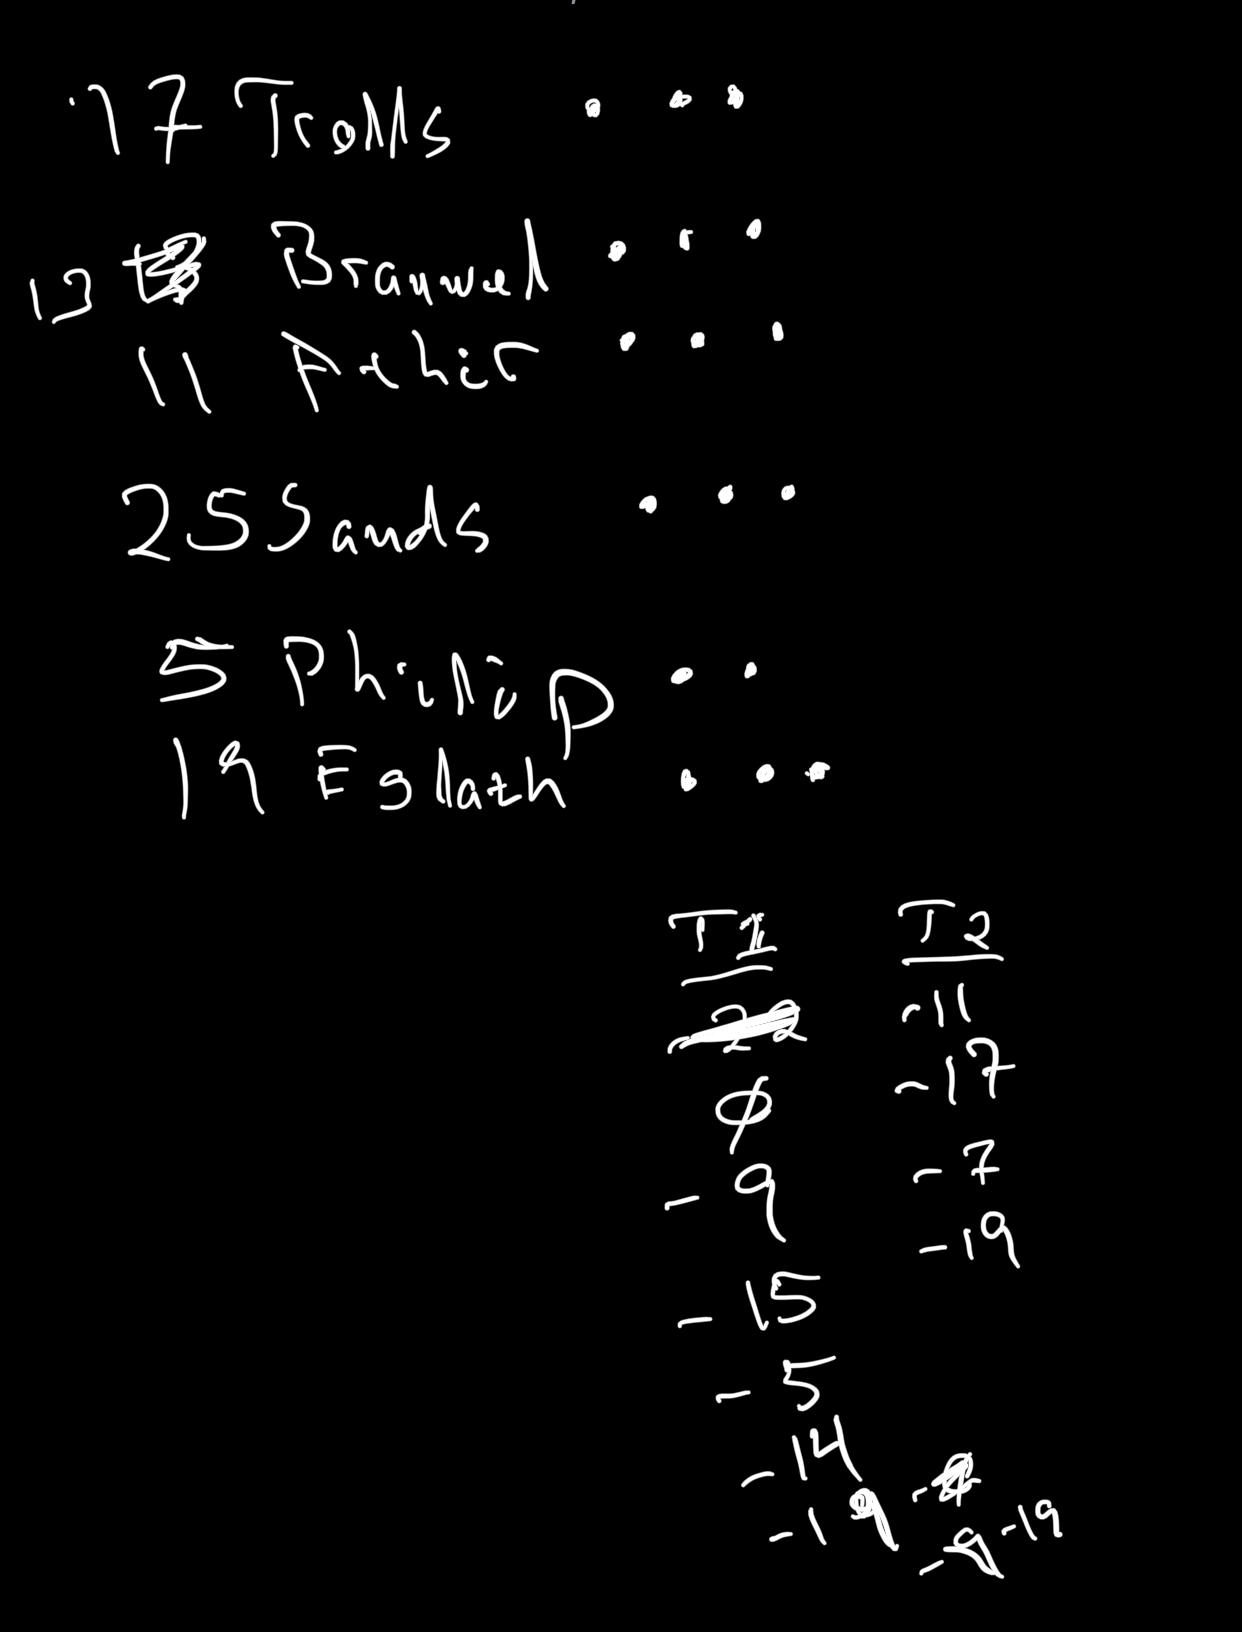 17 Trolls • • •
13 Branwel • • •
11 Aethir • • •
25 Sands • • •
5 Philip • •
19 Eglath • • •
T1 T2
-22 -11
Ø -17
-9 -7
-15 -19
-5
-14
-19
-9 -19